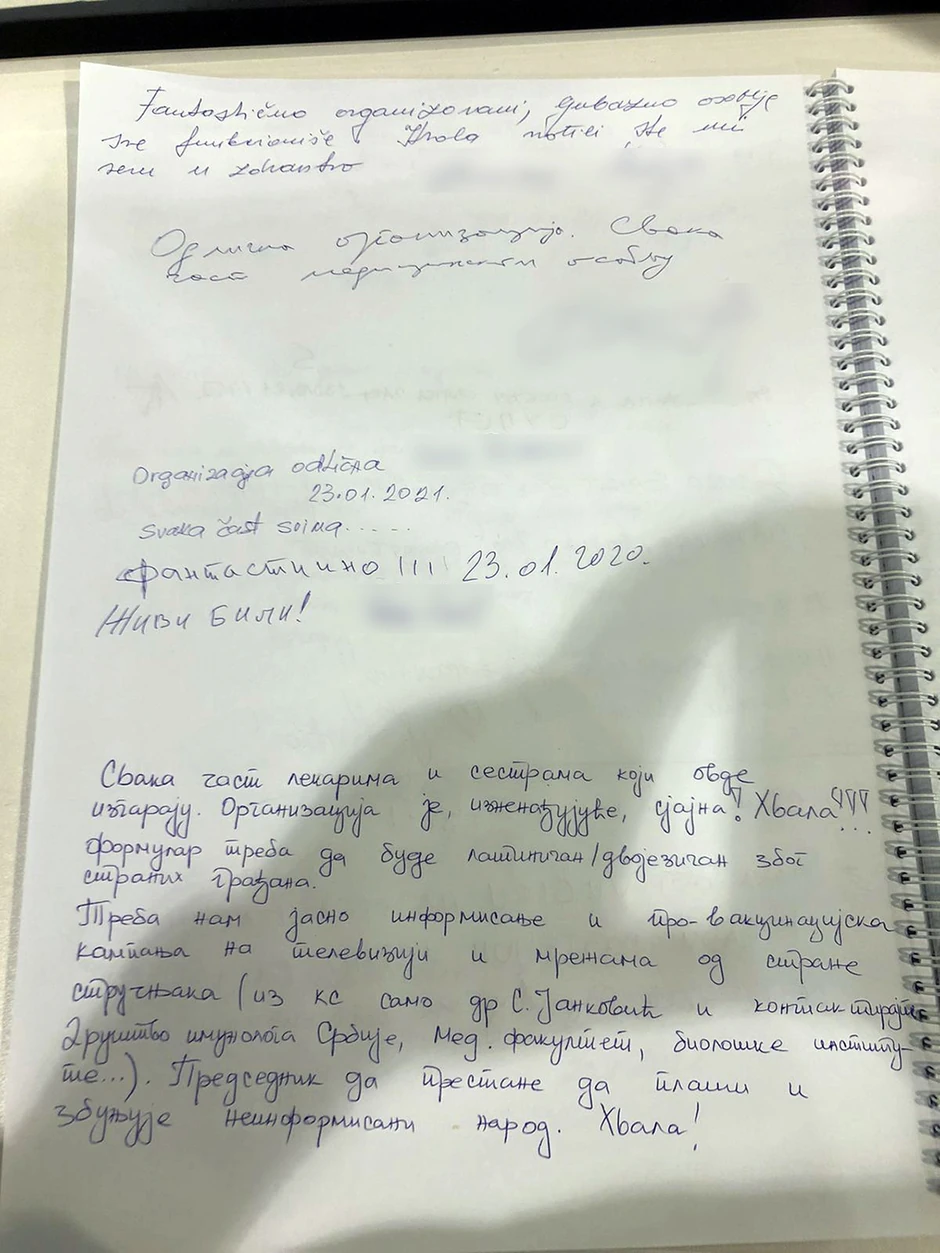 Fantastično organizovani, ljubazno osoblje
sve funkcioniše. Hvala
sem u zdravstvo
Одлична организација. Свака
част медицинском особљу
Organizacija odlična
23.01.2021.
svaka čast svima......
фантастиино !!!! 23.01.2020.
Живи били!
Свака част лекарима и сестрама који овде
изгарају. Организација је, изненађујуће, сјајна! Хвала!!!
формулар треба да буде латиничан/двојезичан због
страних грађана.
Треба нам јасно информисање и про-вакцинацијска
кампања на телевизији и мрежама од стране
стручњака (из КС само др С. Јанковић и контактирајте
Друштво имунолога Србије, Мед. факултет, биолошке институ-
те...). Председник да престане да плаши и
збуњује неинформисани народ. Хвала!